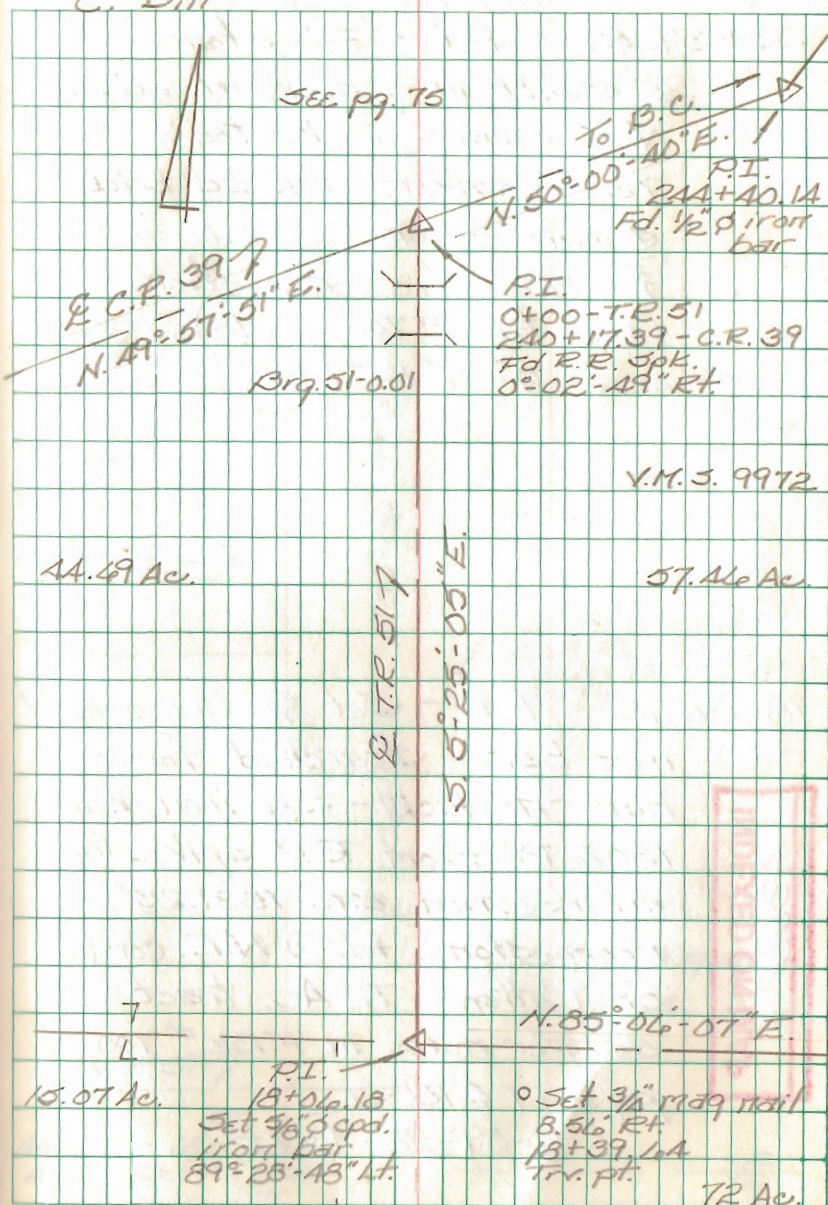 SEE pg. 75
To B.C.
N. 50°-00'-40"E.
P.I.
244+40.14
Fd. 1/2" ø iron
bar
℄ C.R. 39
N. 49°-57'-51" E.
P.I.
0+00 - T.R. 51
240+17.39 - C.R. 39
Fd R.R. Spk.
0°-02'-49" Rt.
Brg. 51-0.01
V.M.S. 9972
44.49 Ac.
57.46 Ac.
℄ T.R. 51
S. 5°-25'-05" E.
N. 85°-06'-07" E.
P.I.
18+06.18
Set 5/8" ø cpd.
iron bar
89°-28'-48" Lt.
15.07 Ac.
Set mag nail
8.56' Rt
18+39.64
Trv. pt.
72 Ac.